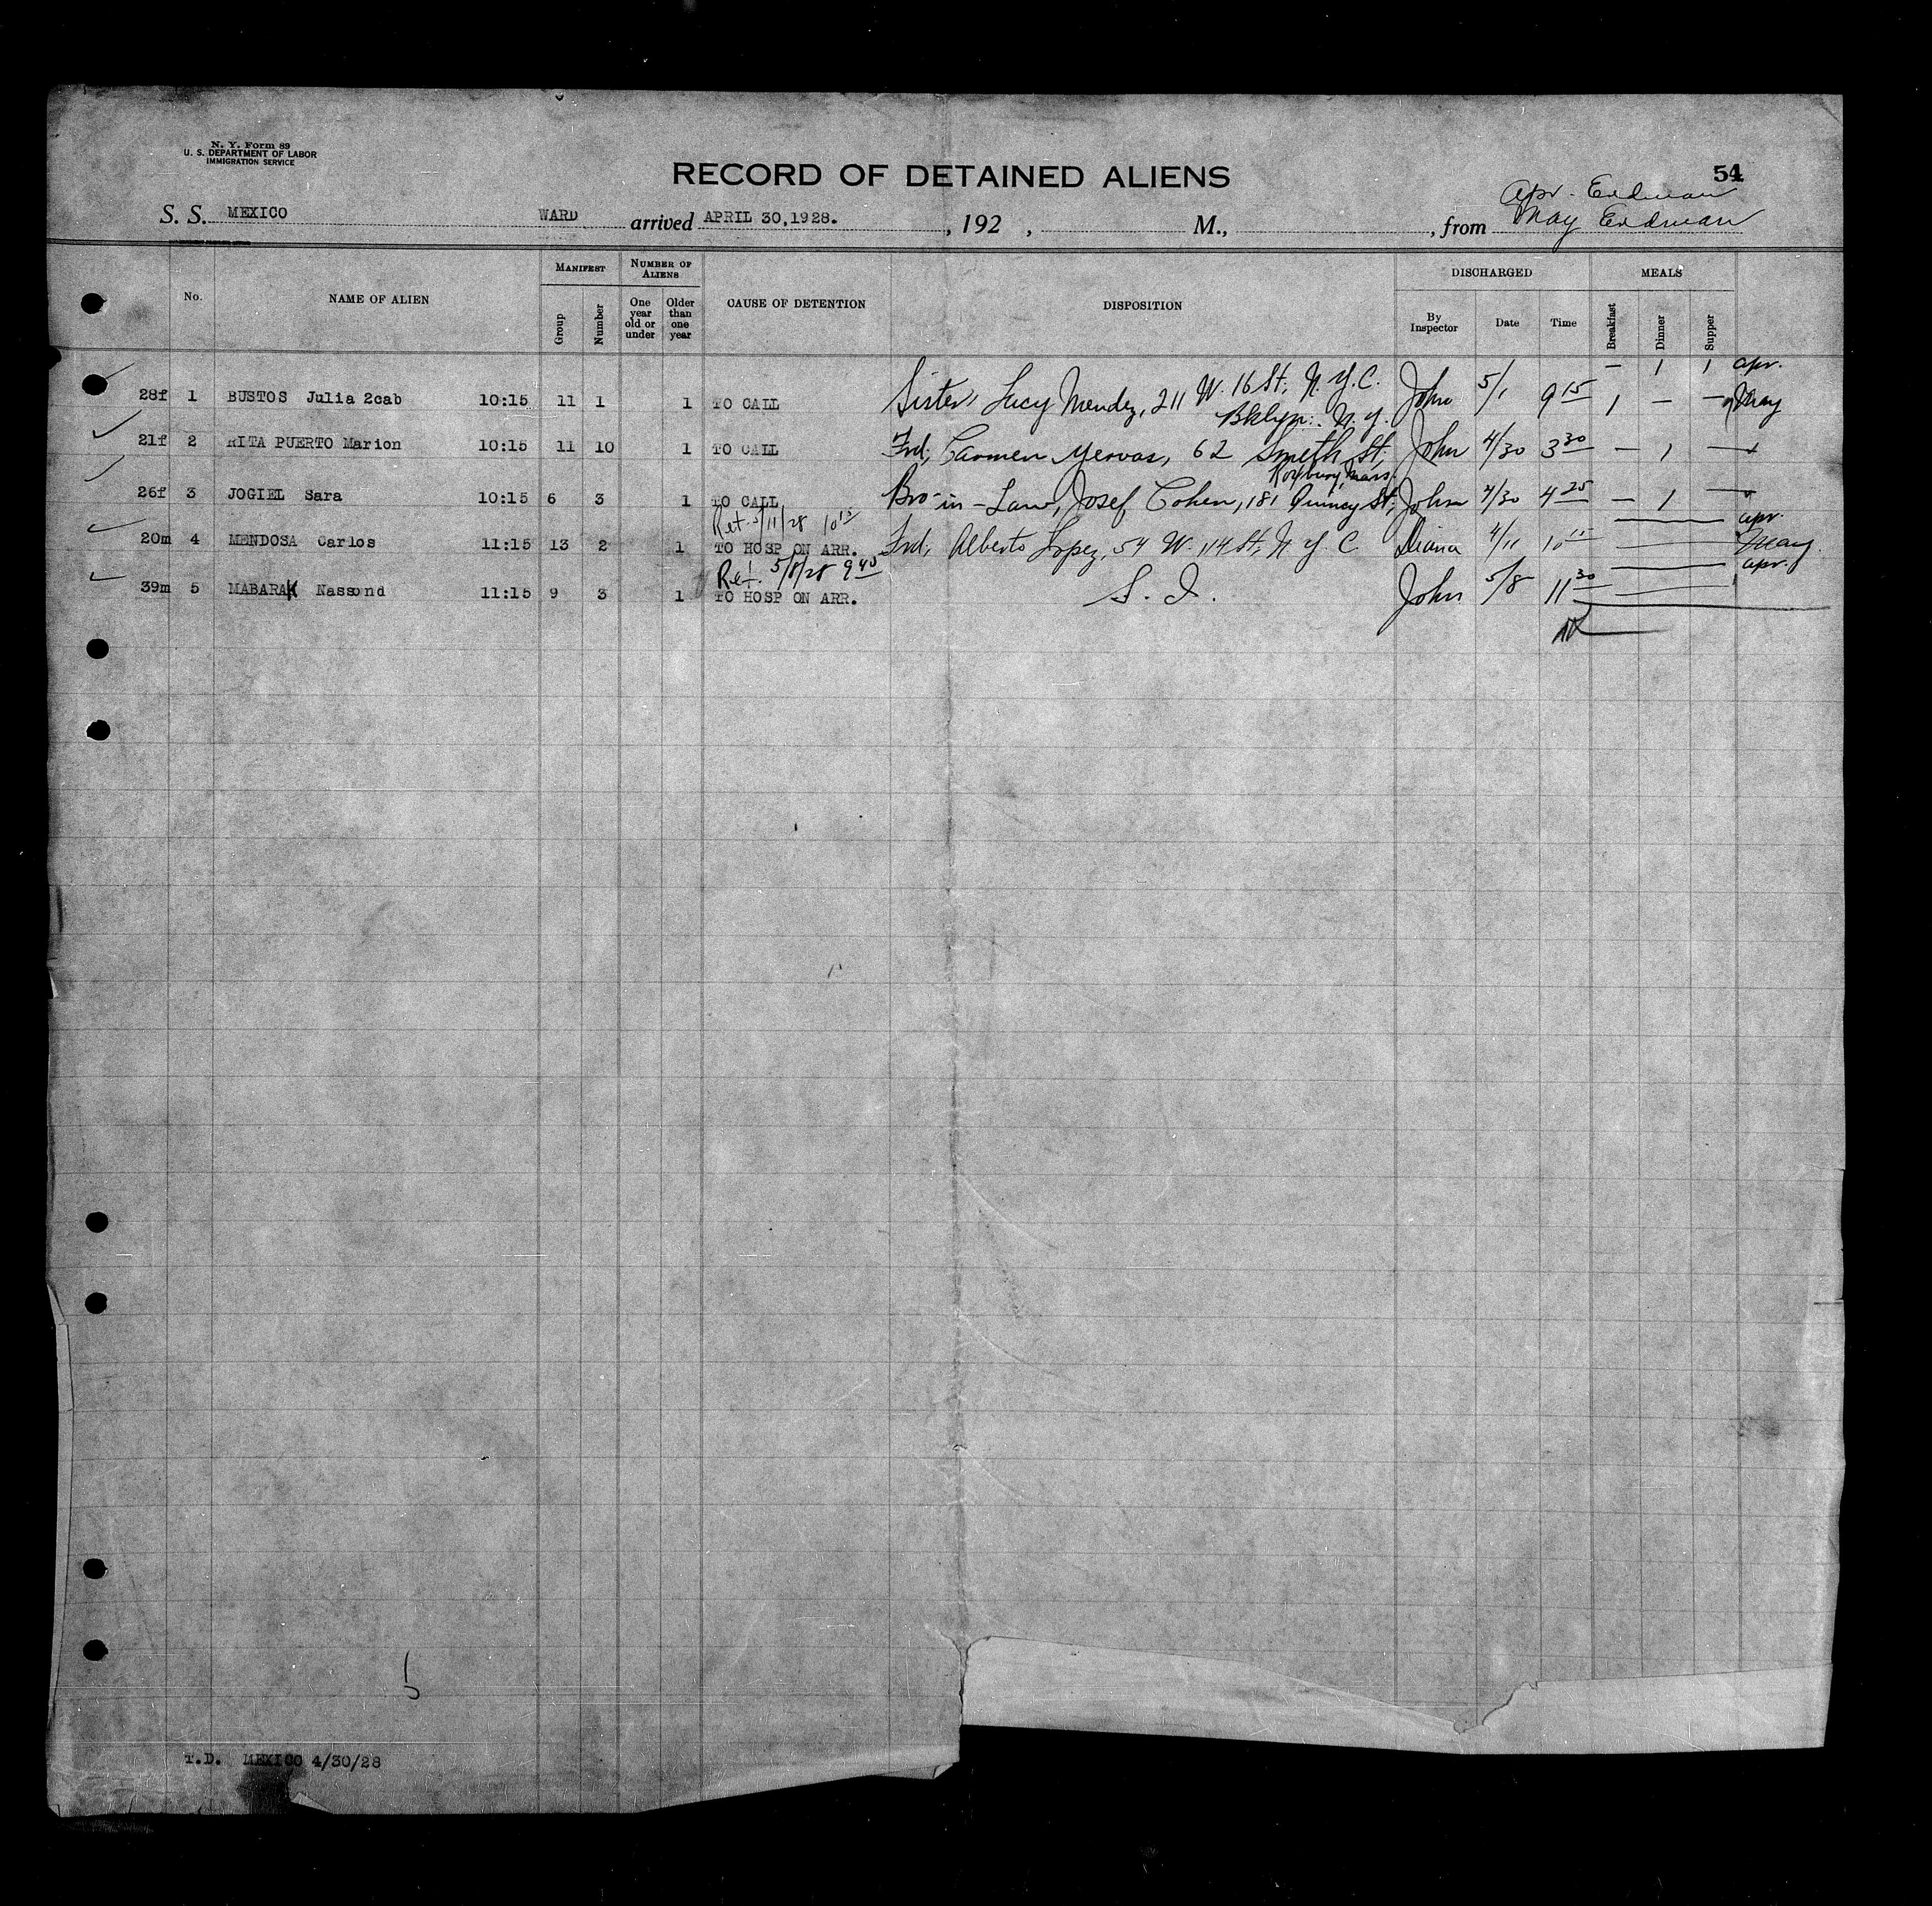 N. Y. Form 89
U. S. DEPARTMENT OF LABOR
IMMIGRATION SERVICE
RECORD OF DETAINED ALIENS
54
Apr. Erdman
S. S. MEXICO WARD arrived APRIL 30,1928. , 192 , M., , from May Erdman
No. NAME OF ALIEN MANIFEST Group Number NUMBER OF ALIENS One year old or under Older than one year CAUSE OF DETENTION DISPOSITION DISCHARGED By Inspector Date Time MEALS Breakfast Dinner Supper
— 1 1 Apr.
28f 1 BUSTOS Julia 2cab 10:15 11 1 1 TO CALL Sister, Lucy Mendez, 211 W. 16 St, N.Y.C. John 5/1 9 15 1 — — May
Bklyn. N.Y.
21f 2 RITA PUERTO Marion 10:15 11 10 1 TO CALL Frd, Carmen 62 Smith St, John 4/30 3 30 — 1 —
Roxbury, Mass.
26f 3 JOGIEL Sara 10:15 6 3 1 TO CALL Bro-in-Law, Josef Cohen, 181 Quincy St, John 4/30 4 25 — 1 —
Ret. 5/11/28 10 15 Apr.
20m 4 MENDOSA Carlos 11:15 13 2 1 TO HOSP ON ARR. Frd, Alberto Lopez, 54 W. 114 St, N.Y.C. Diana 4/11 10 15 May
Ret. 5/8/28 9 40 Apr.
39m 5 MABARAK Nassond 11:15 9 3 1 TO HOSP ON ARR. S. I. John 5/8 11 30
5
T.D. MEXICO 4/30/28